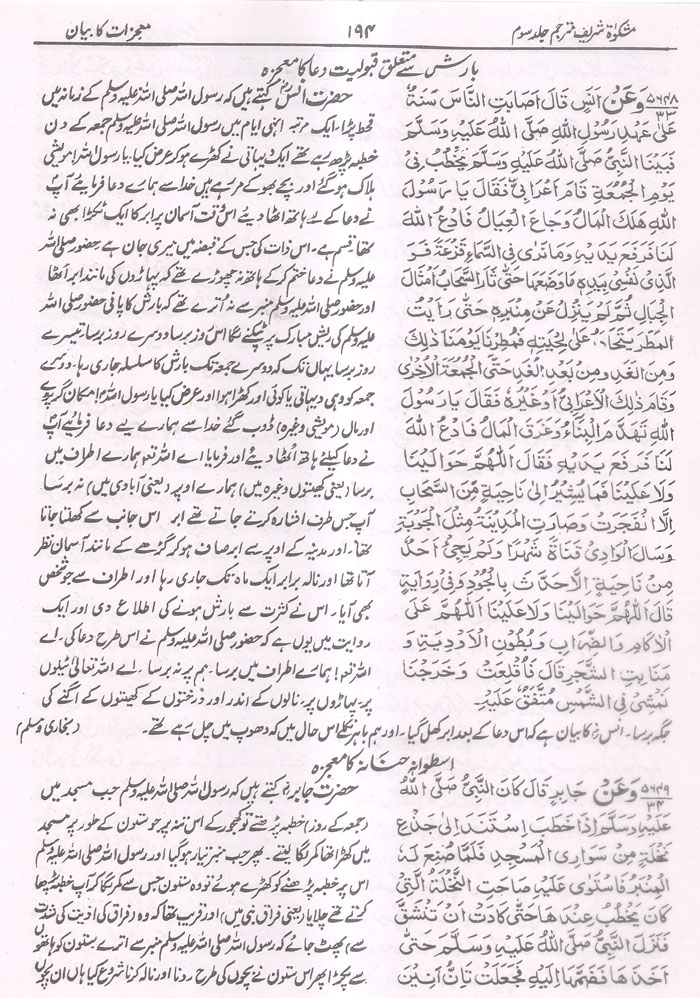 مشکوٰۃ شریف مترجم جلد سوم
۱۹۴
معجزات کا بیان
بارش سے متعلق قبولیت دعا کا معجزہ
۵۶۴۸
۳۳
وَعَنْ اَنَسٍ قَالَ اَصَابَتِ النَّاسَ سَنَةٌ
عَلٰى عَهْدِ رَسُوْلِ اللهِ صَلَّى اللهُ عَلَيْهِ وَسَلَّمَ
فَبَيْنَا النَّبِىُّ صَلَّى اللهُ عَلَيْهِ وَسَلَّمَ يَخْطُبُ فِىْ
يَوْمِ الْجُمُعَةِ قَامَ اَعْرَابِىٌّ فَقَالَ يَا رَسُوْلَ
اللهِ هَلَكَ الْمَالُ وَجَاعَ الْعِيَالُ فَادْعُ اللهَ
لَنَا فَرَفَعَ يَدَيْهِ وَمَا نَرٰى فِى السَّمَاءِ قَزَعَةً فَوَ
الَّذِىْ نَفْسِىْ بِيَدِهٖ مَا وَضَعَهَا حَتّٰى ثَارَ السَّحَابُ اَمْثَالَ
الْجِبَالِ ثُمَّ لَمْ يَنْزِلْ عَنْ مِنْبَرِهٖ حَتّٰى رَاَيْتُ
الْمَطَرَ يَتَحَادَرُ عَلٰى لِحْيَتِهٖ فَمُطِرْنَا يَوْمَنَا ذٰلِكَ
وَمِنَ الْغَدِ وَمِنْ بَعْدِ الْغَدِ حَتَّى الْجُمُعَةِ الْاُخْرٰى
وَقَامَ ذٰلِكَ الْاَعْرَابِىُّ اَوْ غَيْرُهٗ فَقَالَ يَا رَسُوْلَ
اللهِ تَهَدَّمَ الْبِنَاءُ وَغَرِقَ الْمَالُ فَادْعُ اللهَ
لَنَا فَرَفَعَ يَدَيْهِ فَقَالَ اَللّٰهُمَّ حَوَالَيْنَا
وَلَا عَلَيْنَا فَمَا يُشِيْرُ اِلٰى نَاحِيَةٍ مِّنَ السَّحَابِ
اِلَّا انْفَجَرَتْ وَصَارَتِ الْمَدِيْنَةُ مِثْلَ الْجَوْبَةِ
وَسَالَ الْوَادِىْ قَنَاةُ شَهْرًا وَلَمْ يَجِئْ اَحَدٌ
مِنْ نَاحِيَةٍ اِلَّا حَدَّثَ بِالْجَوْدِ وَفِىْ رِوَايَةٍ
قَالَ اَللّٰهُمَّ حَوَالَيْنَا وَلَا عَلَيْنَا اَللّٰهُمَّ عَلَى
الْاٰكَامِ وَالظِّرَابِ وَبُطُوْنِ الْاَوْدِيَةِ وَ
مَنَابِتِ الشَّجَرِ قَالَ فَاَقْلَعَتْ وَخَرَجْنَا
نَمْشِىْ فِى الشَّمْسِ مُتَّفَقٌ عَلَيْهِ
حضرت انسؓ کہتے ہیں کہ رسول اللہ صلی اللہ علیہ وسلم کے زمانہ میں
قحط پڑا، ایک مرتبہ انہی ایام میں رسول اللہ صلی اللہ علیہ وسلم جمعہ کے دن
خطبہ پڑھ رہے تھے ایک دیہاتی نے کھڑے ہو کر عرض کیا۔ یا رسول اللہؐ! مویشی
ہلاک ہو گئے اور بچے بھوکے مر رہے ہیں خدا سے ہمارے لئے دعا فرمائیے آپؐ
نے دعا کے لئے ہاتھ اٹھا دیئے اس وقت آسمان پر ابر کا ایک ٹکڑا بھی نہ
تھا قسم ہے۔ اس ذات کی جس کے قبضہ میں میری جان ہے حضور صلی اللہ
علیہ وسلم نے دعا ختم کر کے ہاتھ نہ چھوڑے تھے کہ پہاڑوں کی مانند ابر اٹھا
اور حضور صلی اللہ علیہ وسلم منبر سے نہ اترے تھے کہ بارش کا پانی حضور صلی اللہ
علیہ وسلم کی ریش مبارک پر ٹپکنے لگا اس روز برسا دوسرے روز برسا تیسرے
روز برسا یہاں تک کہ دوسرے جمعہ تک بارش کا سلسلہ جاری رہا۔ دوسرے
جمعہ کو وہی دیہاتی یا کوئی اور کھڑا ہوا اور عرض کیا یا رسول اللہؐ! مکان گر پڑے
اور مال (مویشی وغیرہ) ڈوب گئے خدا سے ہمارے لئے دعا فرمائیے آپؐ
نے دعا کیلئے ہاتھ اٹھا دیئے اور فرمایا اے اللہ تعالیٰ ہمارے اطراف میں
برسا (یعنی کھیتوں وغیرہ میں) ہمارے اوپر (یعنی آبادی میں) نہ برسا
آپ جس طرف اشارہ کرتے جاتے تھے ابر اس جانب سے کھلتا جاتا
تھا۔ اور مدینہ کے اوپر سے ابر صاف ہو کر گڑھے کے مانند آسمان نظر
آتا تھا اور نالہ برابر ایک ماہ تک جاری رہا اور اطراف سے جو شخص
بھی آیا۔ اس نے کثرت سے بارش ہونے کی اطلاع دی اور ایک
روایت میں یوں ہے کہ حضور صلی اللہ علیہ وسلم نے اس طرح دعا کی۔ اے
اللہ تعالیٰ! ہمارے اطراف میں برسا۔ ہم پر نہ برسا۔ اے اللہ تعالیٰ ٹیلوں
پر، پہاڑوں پر، نالوں کے اندر اور درختوں کے کھیتوں کے اگنے کی
جگہ برسا۔ انسؓ کا بیان ہے کہ اس دعا کے بعد ابر کھل گیا۔ اور ہم باہر نکلے اس حال میں کہ دھوپ میں چل رہے تھے۔ (بخاری و مسلم)
اسطوانہ حنانہ کا معجزہ
۵۶۴۹
۳۴
وَعَنْ جَابِرٍ قَالَ كَانَ النَّبِىُّ صَلَّى اللهُ
عَلَيْهِ وَسَلَّمَ اِذَا خَطَبَ اسْتَنَدَ اِلٰى جِذْعِ
نَخْلَةٍ مِنْ سَوَارِى الْمَسْجِدِ فَلَمَّا صُنِعَ لَهُ
الْمِنْبَرُ فَاسْتَوٰى عَلَيْهِ صَاحَتِ النَّخْلَةُ الَّتِىْ
كَانَ يَخْطُبُ عِنْدَهَا حَتّٰى كَادَتْ اَنْ تَنْشَقَّ
فَنَزَلَ النَّبِىُّ صَلَّى اللهُ عَلَيْهِ وَسَلَّمَ حَتّٰى
اَخَذَهَا فَضَمَّهَا اِلَيْهِ فَجَعَلَتْ تَاِنُّ اَنِيْنَ
حضرت جابرؓ کہتے ہیں کہ رسول اللہ صلی اللہ علیہ وسلم جب مسجد میں
(جمعہ کے روز) خطبہ پڑھتے تو کھجور کے اس تنہ پر جو ستون کے طور پر مسجد
میں کھڑا تھا کمر لگا لیتے۔ پھر جب منبر تیار ہو گیا اور رسول اللہ صلی اللہ علیہ وسلم
اس پر خطبہ پڑھنے کو کھڑے ہوئے تو وہ ستون جس سے کمر لگا کر آپ خطبہ پڑھا
کرتے تھے چلایا (یعنی فراق نبی میں) اور قریب تھا کہ وہ (فراق کی اذیت کی شدت
سے) پھٹ جائے کہ رسول اللہ صلی اللہ علیہ وسلم منبر سے اترے ستون کو ہاتھوں
سے پکڑا پھر اس ستون نے بچوں کی طرح رونا اور نالہ کرنا شروع کیا ہاں ان بچوں